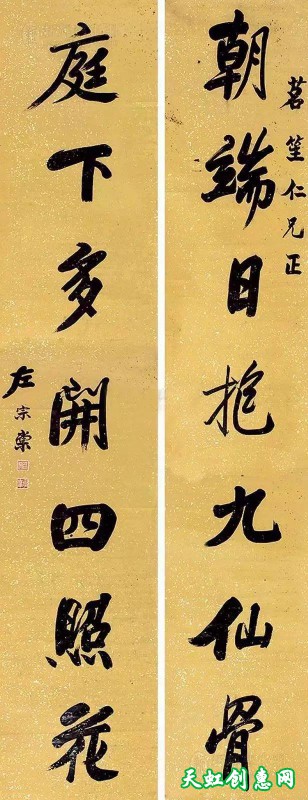 茗笙仁兄正
朝端日抱九仙骨
庭下多開四照花
左宗棠
天虹创意网